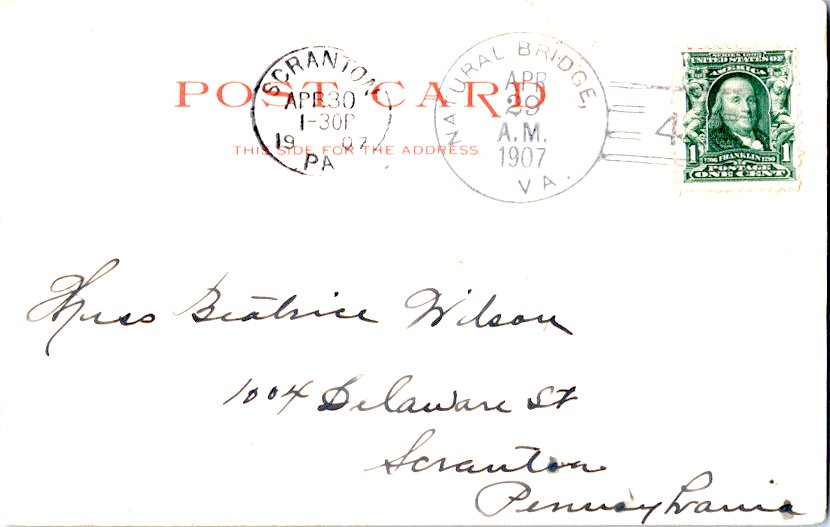 POST CARD
THIS SIDE FOR THE ADDRESS
SCRANTON,
APR 30
1-30P
19 07
PA
NATURAL BRIDGE,
APR
29
A.M.
1907
VA.
4
SERIES 1902
UNITED STATES OF
AMERICA
1 FRANKLIN 1
POSTAGE
ONE CENT
Miss Beatrice Wilson
1004 Delaware St
Scranton
Pennsylvania